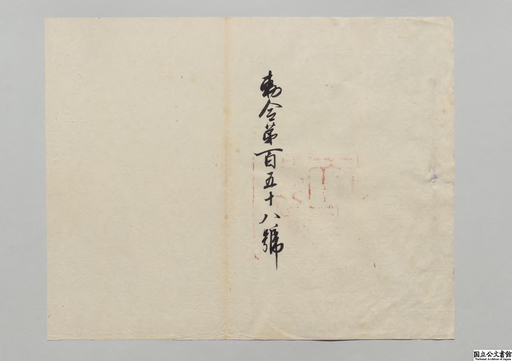 勅令第百五十八號
国立公文書館
National Archives of Japan